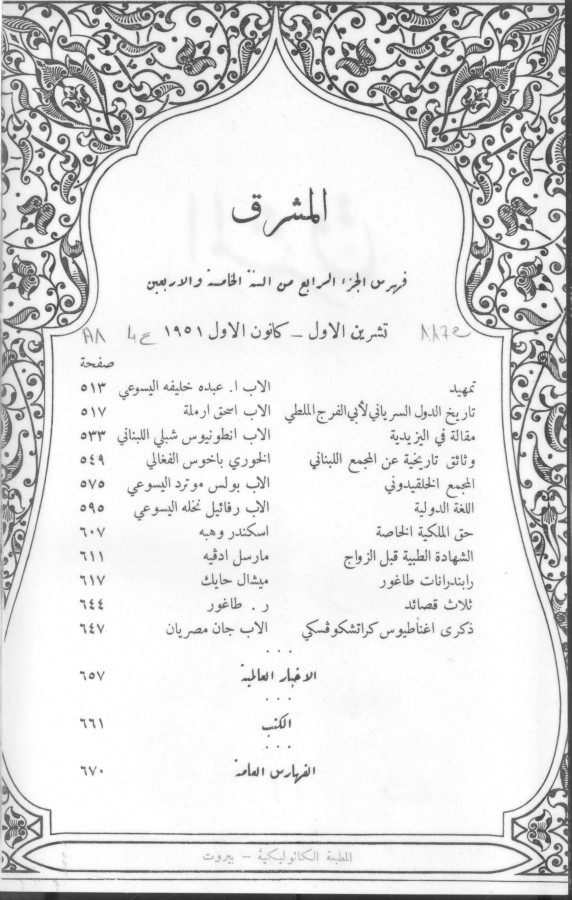 المشرق
فهرس الجزء الرابع من السنة الخامسة والاربعين
تشرين الاول - كانون الاول ١٩٥١
صفحة
تمهيد الاب ا. عبده خليفه اليسوعي ٥١٣
تاريخ الدول السرياني لأبي الفرج الملطي الاب اسحق ارملة ٥١٧
مقالة في اليزيدية الاب انطونيوس شبلي اللبناني ٥٣٣
وثائق تاريخية عن المجمع اللبناني الخوري باخوس الفغالي ٥٤٩
المجمع الخلقيدوني الاب بولس موترد اليسوعي ٥٧٥
اللغة الدولية الاب رفائيل نخله اليسوعي ٥٩٥
حق الملكية الخاصة اسكندر وهبه ٦٠٧
الشهادة الطبية قبل الزواج مارسل ادڤيه ٦١١
رابندرانات طاغور ميشال حايك ٦١٧
ثلاث قصائد ر. طاغور ٦٤٤
ذكرى اغناطيوس كراتشكوڤسكي الاب جان مصريان ٦٤٧
. . .
الاخبار العالمية ٦٥٧
. . .
الكتب ٦٦١
. . .
الفهارس العامة ٦٧٠
المطبعة الكاثوليكية - بيروت